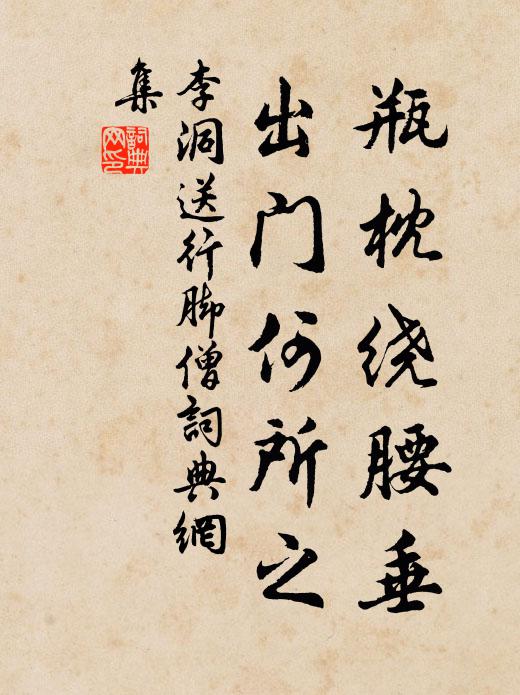 瓶枕绕腰垂
出门何所之
李洞送行脚僧詞典網
集
詞典
网印